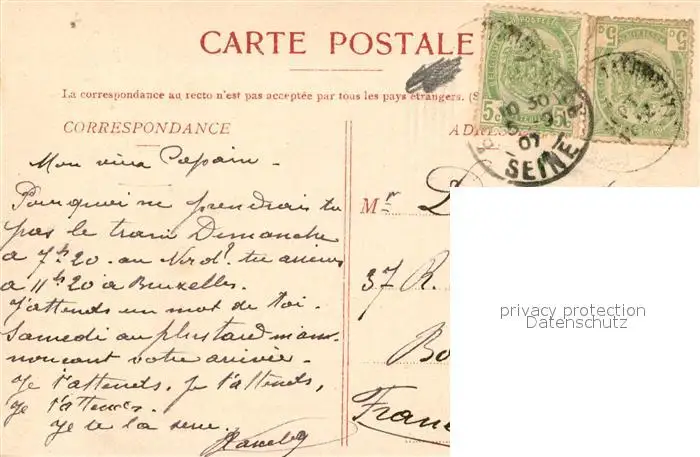 CARTE POSTALE
La correspondance au recto n'est pas acceptée par tous les pays étrangers. (S
CORRESPONDANCE
ADRESSE
Mon vieux Copain -
Pourquoi ne prendrais tu
pas le train Dimanche
à 7h 20 au Nord? tu arrives
à 11h 20 à Bruxelles.
J'attends un mot de toi
Samedi au plus tard m'an-
nonçant votre arrivée -
Je t'attends, je t'attends,
je t'attends.
Je te la serre.
Mr
37 R.
Bo
France
SEINE
5c
privacy protection
Datenschutz